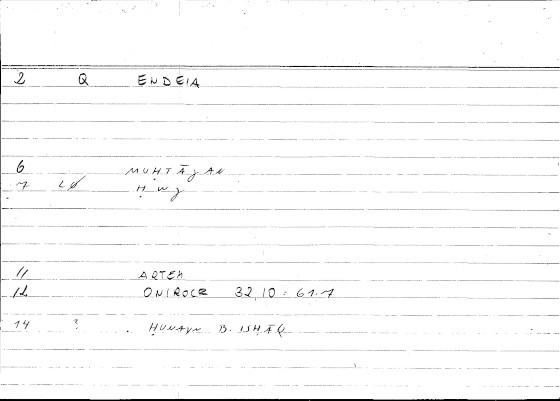 2 Q ENDEIA
6 MUḤTĀǧAN
7 LØ ḤWǧ
11 ARTEM
12 ONIROCR 32,10 = 61.7
14 ? ḤUNAYN B. ISḤĀQ